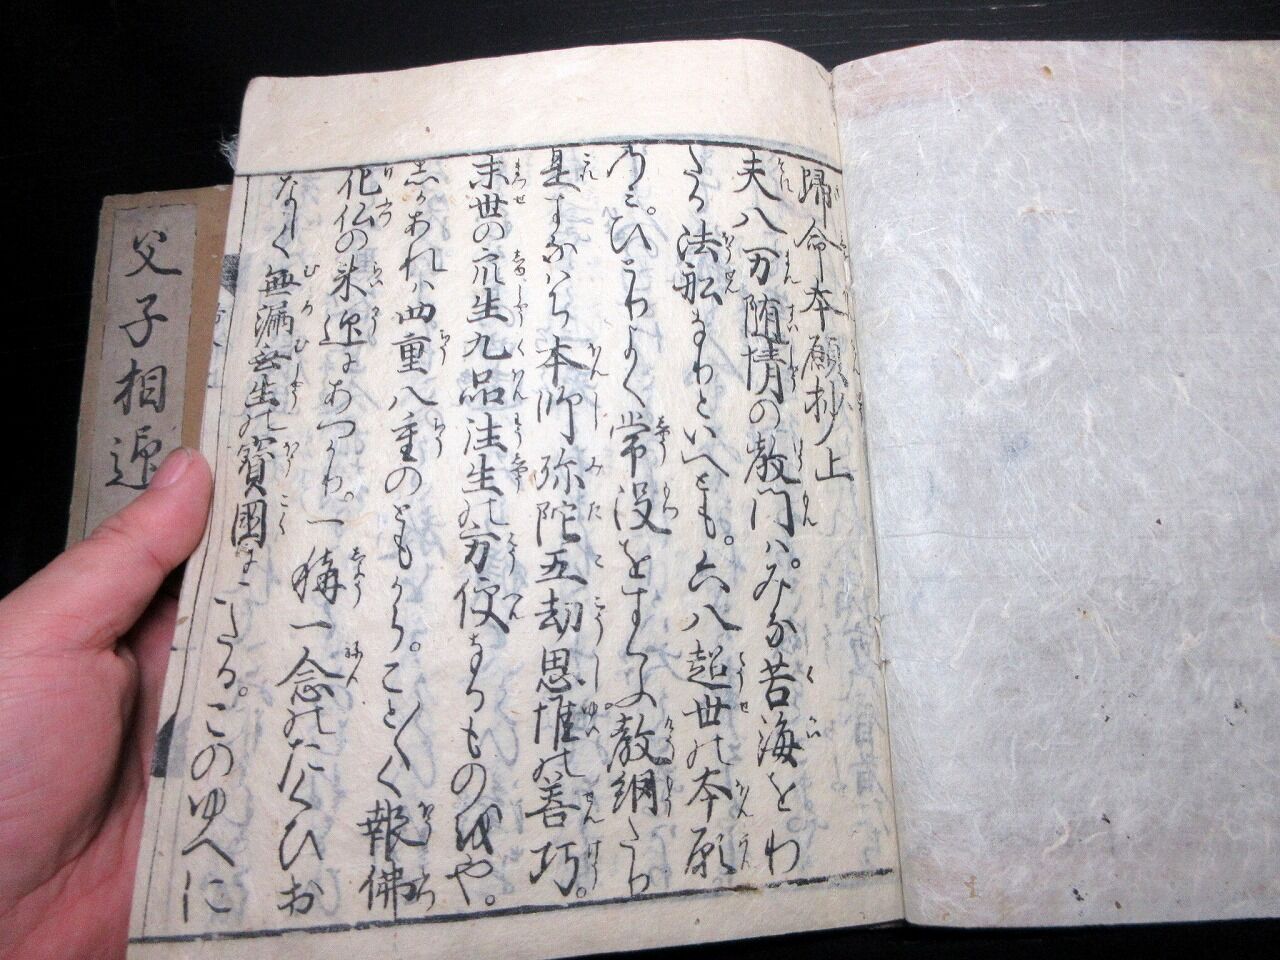 歸命本願抄上
夫八万随情の教門ハ。みな苦海をわ
たる法舩なりといへとも。六八超世の本願
のミ。ひとりよく常没をすくふ教網たり
是すなハち本師弥陀五劫思惟の善巧。
末世の衆生九品往生の方便なるもの哉や。
しかあれハ四重八重のともから。こと〱く報佛
化仏の来迎にあつかり。一稱一念のたくひお
なしく無漏無生の寳國にいたる。このゆへに
父子相迎